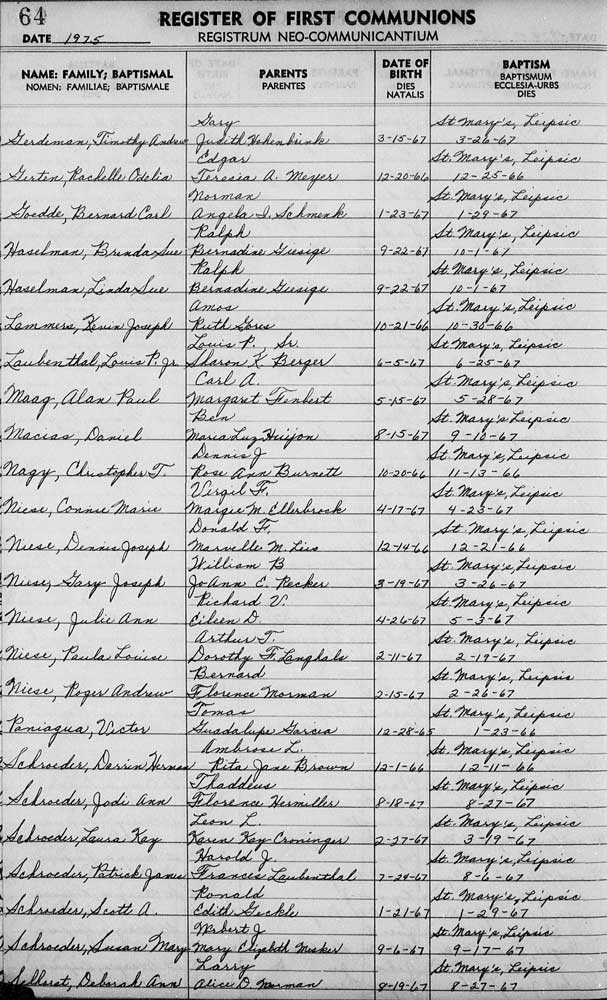 64
REGISTER OF FIRST COMMUNIONS
DATE 1975 REGISTRUM NEO-COMMUNICANTIUM
NAME: FAMILY; BAPTISMAL PARENTS DATE OF BIRTH BAPTISM
NOMEN: FAMILIAE; BAPTISMALE PARENTES DIES NATALIS BAPTISMUM ECCLESIA-URBS DIES
Gary St. Mary's, Leipsic
Gerdeman, Timothy Andrew Judith Hohenbrink 3-15-67 3-26-67
Edgar St. Mary's, Leipsic
Girten, Rachelle Odelia Teresia A. Meyer 12-20-66 12-25-66
Norman St. Mary's, Leipsic
Goedde, Bernard Carl Angela I. Schmenk 1-23-67 1-29-67
Ralph St. Mary's, Leipsic
Haselman, Brenda Sue Bernadine Giesige 9-22-67 10-1-67
Ralph St. Mary's, Leipsic
Haselman, Linda Sue Bernadine Giesige 9-22-67 10-1-67
Amos St. Mary's, Leipsic
Lammers, Kevin Joseph Ruth Gores 10-21-66 10-30-66
Louis P. Sr. St. Mary's, Leipsic
Laubenthal, Louis P. Jr. Sharon K. Berger 6-5-67 6-25-67
Carl A. St. Mary's, Leipsic
Maag, Alan Paul Margaret 5-15-67 5-28-67
Ben St. Mary's Leipsic
Macias, Daniel Maria Luz 8-15-67 9-10-67
Dennis J St. Mary's, Leipsic
Nagy, Christopher T. Rose Ann Burnett 10-20-66 11-13-66
Virgil F. St. Mary's, Leipsic
Niese, Connie Marie Margie M. Ellerbrock 4-17-67 4-23-67
Donald F. St. Mary's, Leipsic
Niese, Dennis Joseph Marvelle M. 12-14-66 12-21-66
William B St. Mary's, Leipsic
Niese, Gary Joseph JoAnn E. Recker 3-19-67 3-26-67
Richard V. St. Mary's, Leipsic
Niese, Julie Ann Eileen D. 4-26-67 5-3-67
Arthur T. St. Mary's, Leipsic
Niese, Paula Louise Dorothy F. Langhals 2-11-67 2-19-67
Bernard St. Mary's, Leipsis
Niese, Roger Andrew Florence Morman 2-15-67 2-26-67
Tomas St. Mary's, Leipsic
Paniagua, Victor Guadalupe Garcia 12-28-65 1-23-66
Ambrose L. St. Mary's, Leipsic
Schroeder, Darrin Herman Rita Jane Brown 12-1-66 12-11-66
Thaddeus St. Mary's, Leipsic
Schroeder, Jodi Ann Florence Hermiller 8-18-67 8-27-67
Leon L. St. Mary's, Leipsic
Schroeder, Laura Kay Karen Kay Croninger 2-27-67 3-19-67
Harold J. St. Mary's, Leipsic
Schroeder, Patrick James Frances Laubenthal 7-24-67 8-6-67
Ronald St. Mary's, Leipsic
Schroeder, Scott A. Edith Geckle 1-21-67 1-29-67
Wilbert J St. Mary's Leipsic
Schroeder, Susan Mary Mary Elizabeth Mesker 9-6-67 9-17-67
Larry St. Mary's, Leipsic
Selhorst, Deborah Ann Alice D. Morman 8-19-67 8-27-67